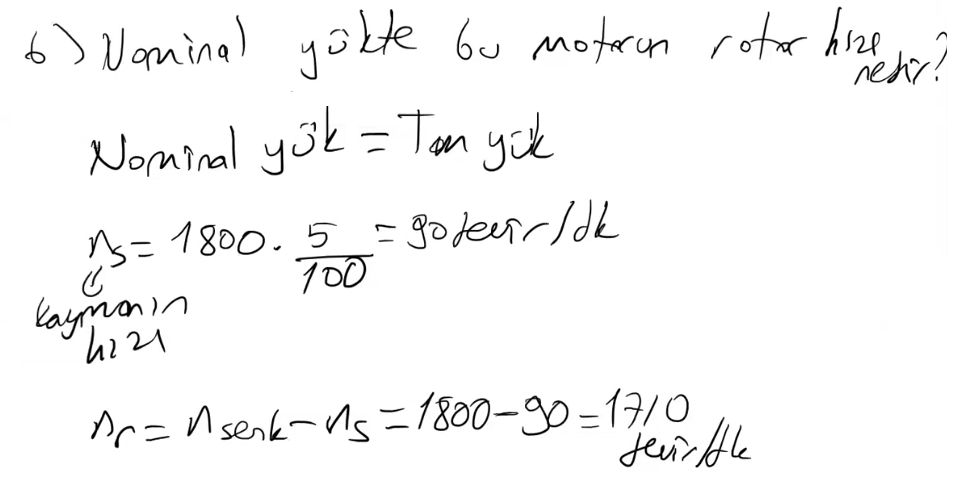 b) Nominal yükte bu motorun rotor hızı nedir?
Nominal yük = Tam yük
ns = 1800 . 5/100 = 90 devir/dk
kaymanın hızı
nr = nsenk - ns = 1800 - 90 = 1710 devir/dk